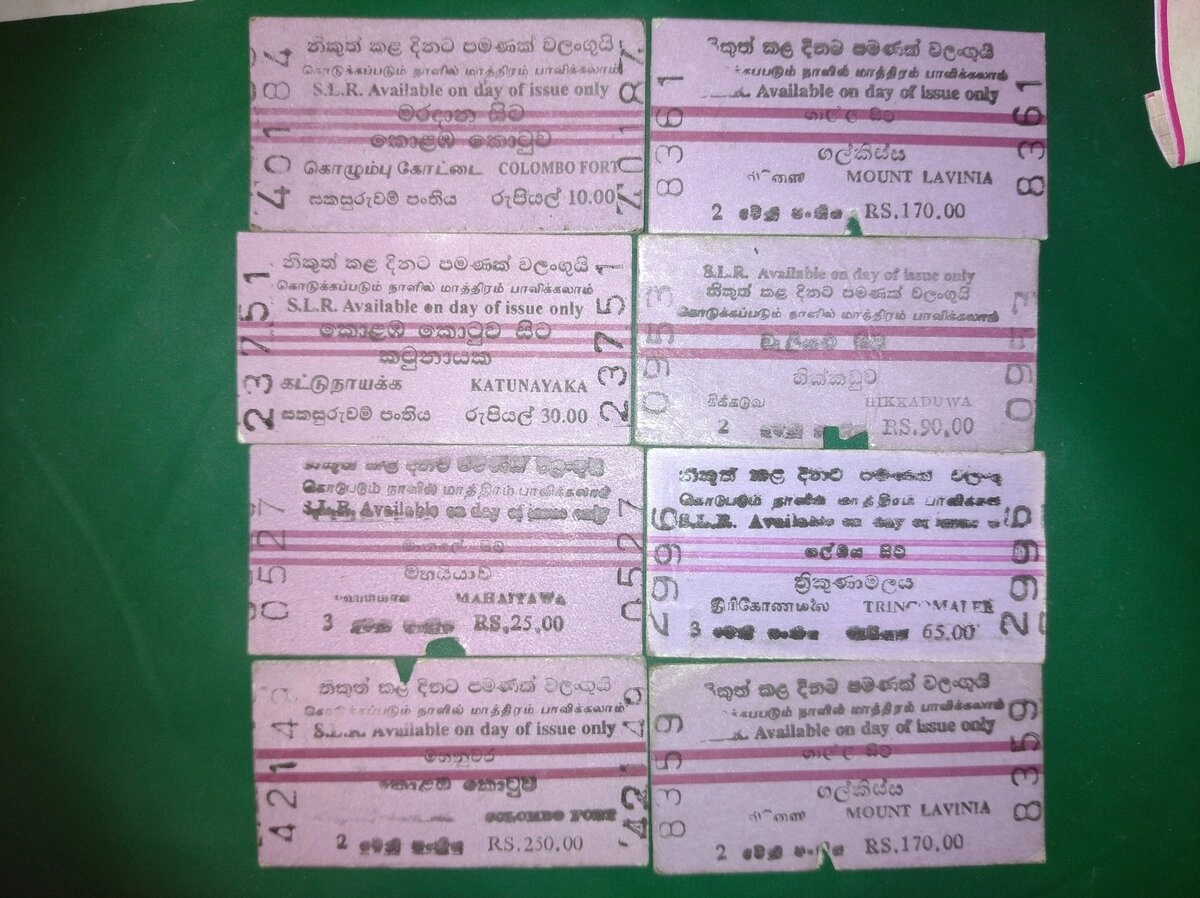 නිකුත් කළ දිනට පමණක් වලංගුයි
கொடுக்கப்படும் நாளில் மாத்திரம் பாவிக்கலாம்
S.L.R. Available on day of issue only
මරදාන සිට
කොළඹ කොටුව
கொழும்பு கோட்டை COLOMBO FORT
සකසුරුවම් පංතිය රුපියල් 10.00
4018 4018
නිකුත් කළ දිනට පමණක් වලංගුයි
நாளில் மாத்திரம் பாவிக்கலாம்
Available on day of issue only
ගාල්ල සිට
ගල්කිස්ස
MOUNT LAVINIA
2 RS.170.00
8361 8361
නිකුත් කළ දිනට පමණක් වලංගුයි
கொடுக்கப்படும் நாளில் மாத்திரம் பாவிக்கலாம்
S.L.R. Available on day of issue only
කොළඹ කොටුව සිට
කටුනායක
கட்டுநாயக்க KATUNAYAKA
සකසුරුවම් පංතිය රුපියල් 30.00
23751 23751
S.L.R. Available on day of issue only
නිකුත් කළ දිනට පමණක් වලංගුයි
கொடுக்கப்படும் நாளில் மாத்திரம் பாவிக்கலாம்
සිට
හික්කඩුව
HIKKADUWA
2 RS.90.00
නිකුත් කළ දිනට පමණක් වලංගුයි
கொடுபடும் நாளில் மாத்திரம் பாவிக்கலாம்
S.L.R. Available on day of issue only
සිට
මහයියාව
MAHAIYAWA
3 RS.25.00
0527 0527
නිකුත් කළ දිනට පමණක්
கொடுபடும் நாளில் மாத்திரம்
S.L.R. Available on day of issue
සිට
ත්‍රිකුණාමලය
திரிகோணமலை TRINCOMALEE
3 65.00
2996 2996
නිකුත් කළ දිනට පමණක් වලංගුයි
நாளில் மாத்திரம் பாவிக்கலாம்
S.L.R. Available on day of issue only
මහනුවර
කොළඹ කොටුව
COLOMBO FORT
2 RS.250.00
නිකුත් කළ දිනට පමණක් වලංගුයි
நாளில் மாத்திரம் பாவிக்கலாம்
Available on day of issue only
ගාල්ල සිට
ගල්කිස්ස
MOUNT LAVINIA
2 RS.170.00
8359 8359